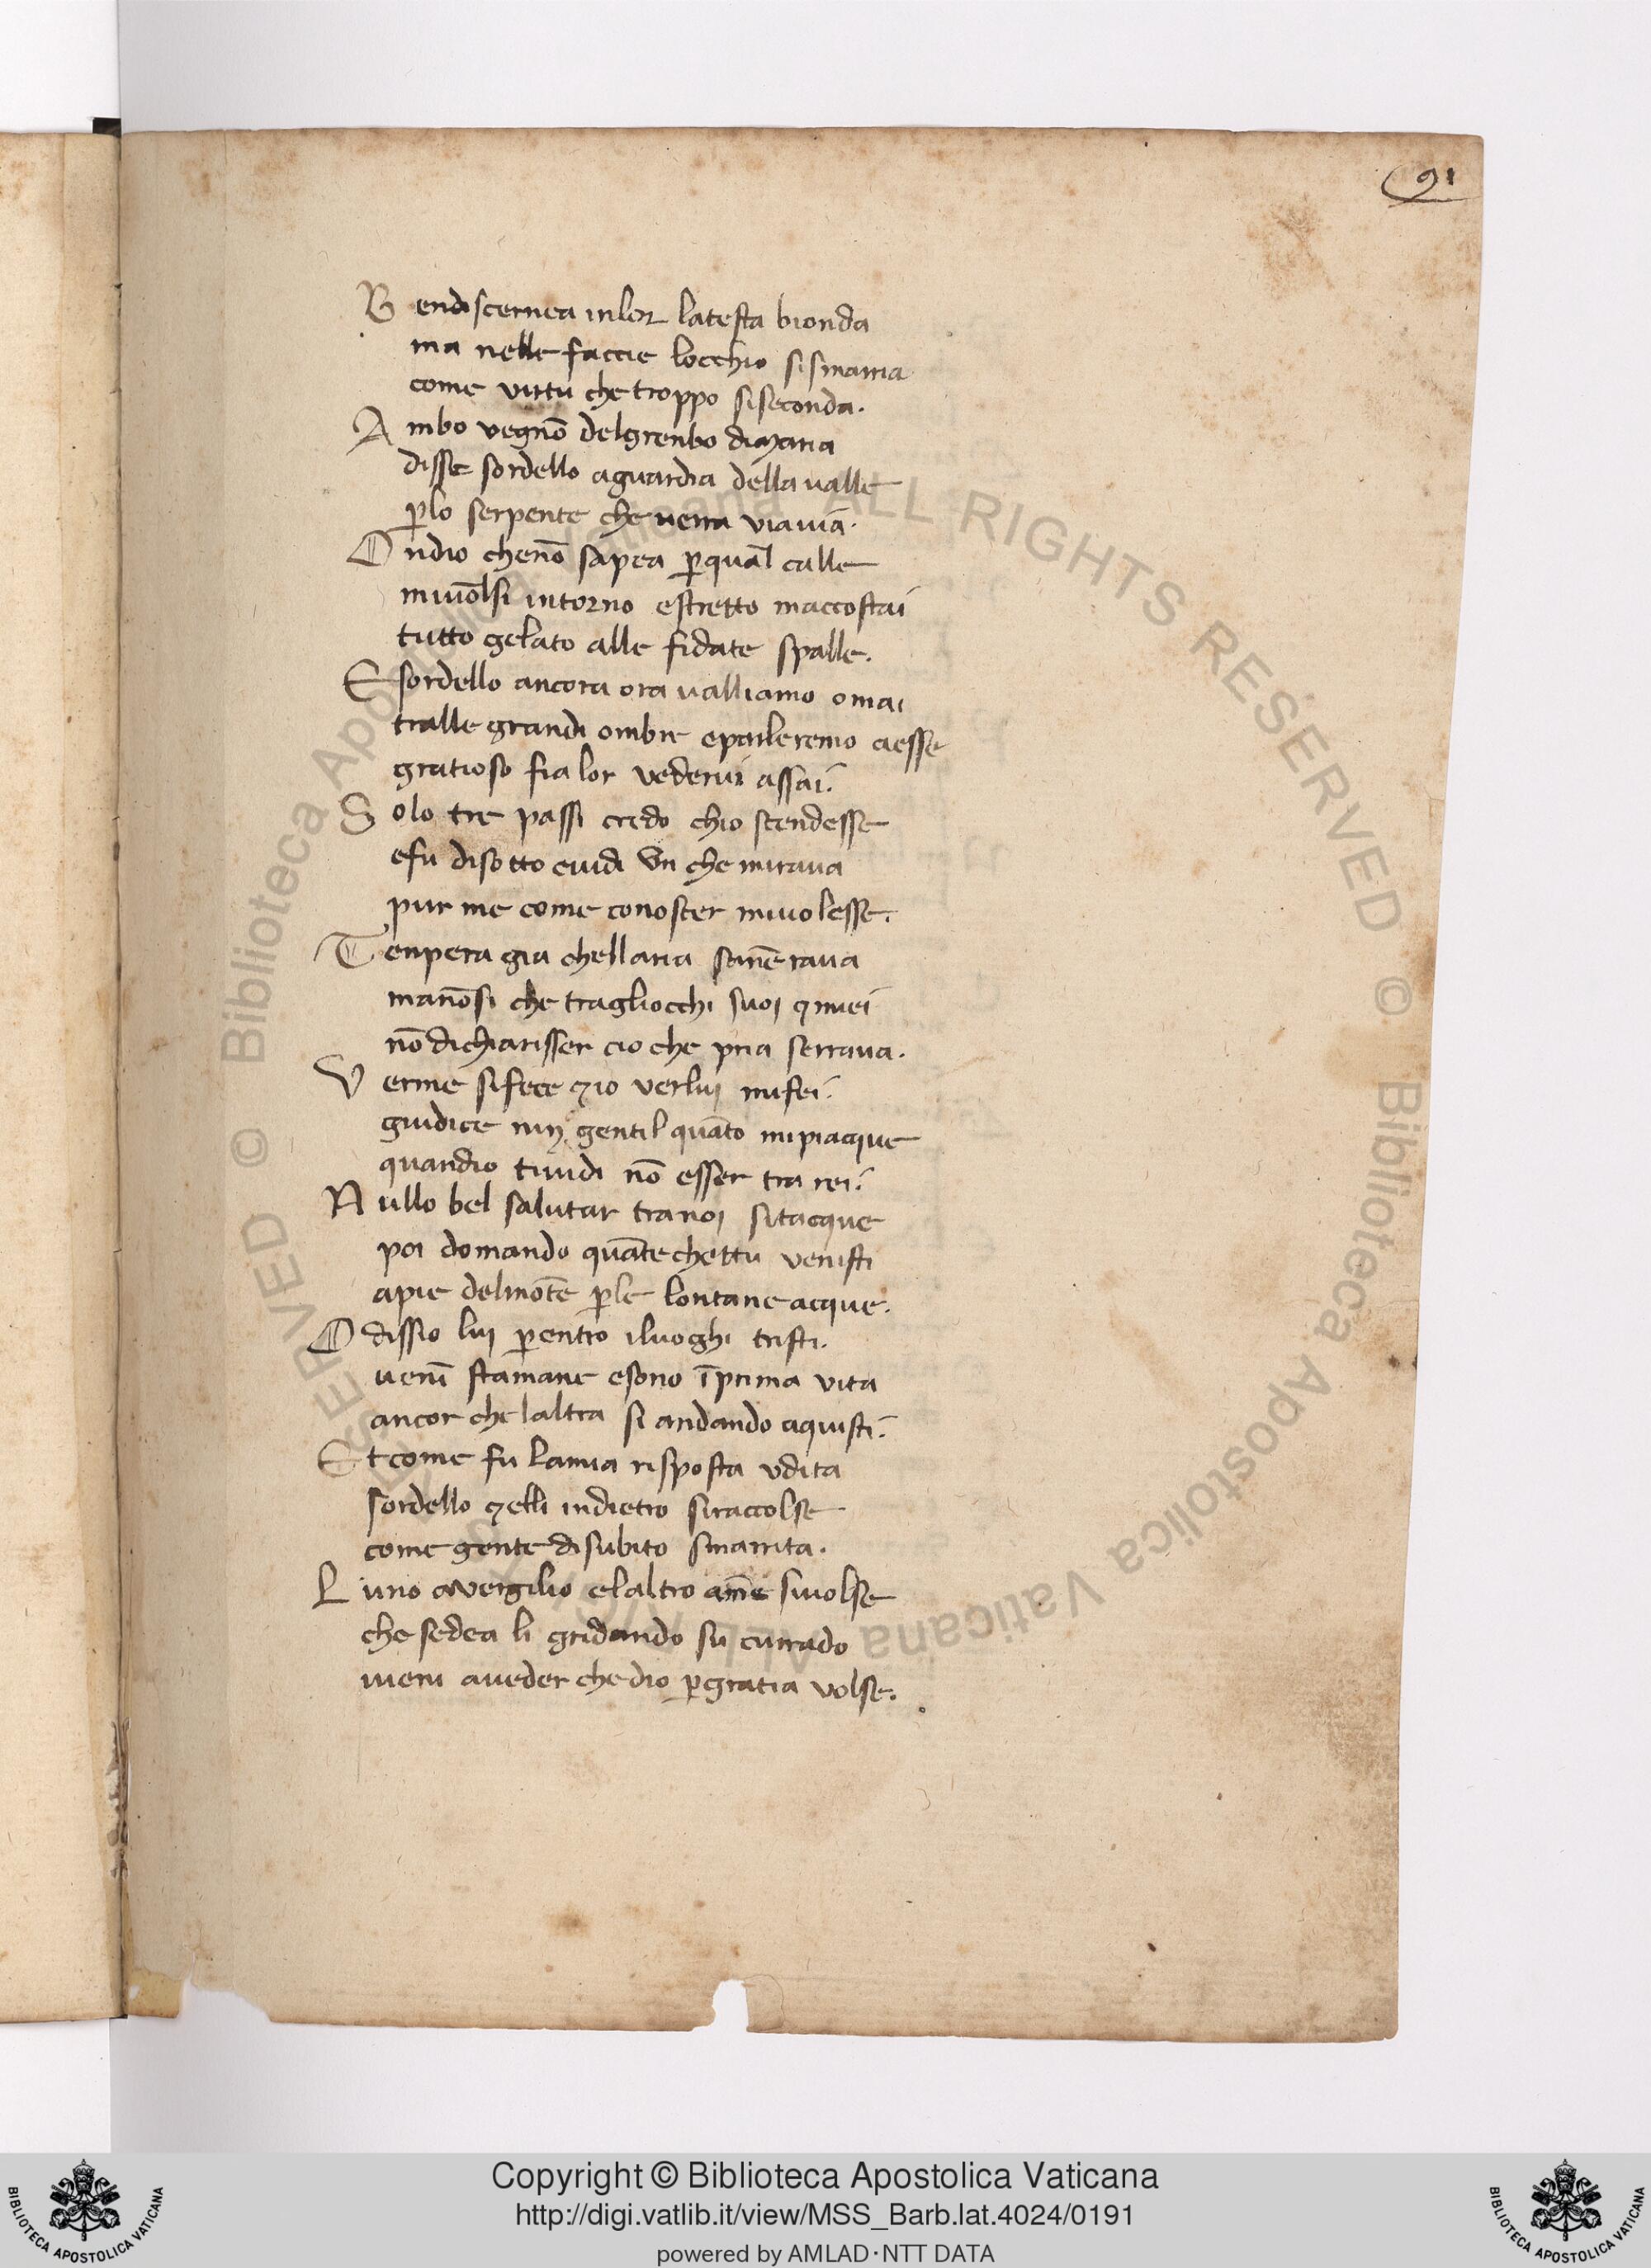 91
B endiscernea inlor latesta bionda
ma nelle faccie locchio sismaria
come virtu che troppo siseconda.
A mbo vegnō delgrenbo dimaria
disse sordello aguardia della ualle
ꝑlo serpente che uerra viauiā.
O ndio chenō sapea ꝑqual calle
miuolsi intorno estretto maccostai
tutto gelato alle fidate spalle.
E sordello ancora ora ualliamo omai
tralle grandi ombre eparleremo aesse
gratioso fia lor vederui assai.
S olo tre passi credo chio scendesse
efu disotto euidi vn che miraua
pur me come conoscer miuolesse.
T enpera gia chellaria sannēraua
manōsi che tragliocchi suoi ⁊ miei
nō dichiarisser cio che pria serraua.
V erme sifece ⁊io verlui mifei.
giudice nin gentil quāto mipiacque
quandio tiuidi nō esser tra rei.
N ullo bel salutar tranoi sitacque
poi domando quātechettu venisti
apie delmōte ꝑle lontane acque.
O dissio lui ꝑentro iluoghi tristi.
uenī stamane esono īprima vita
ancor chelaltra si andando aquisti.
E tcome fu lamia risposta vdita
sordello ⁊elli indietro siraccolse
come gente disubito smarrita.
L uno avergilio elaltro ame siuolse
che sedea li gridando su currado
uieni aueder chedio ꝑgratia volse.
© Biblioteca Apostolica Vaticana ALL RIGHTS RESERVED © Biblioteca Apostolica Vaticana ALL RIGHTS RESERVED
Copyright © Biblioteca Apostolica Vaticana
http://digi.vatlib.it/view/MSS_Barb.lat.4024/0191
powered by AMLAD·NTT DATA
BIBLIOTECA APOSTOLICA VATICANA
BIBLIOTECA APOSTOLICA VATICANA